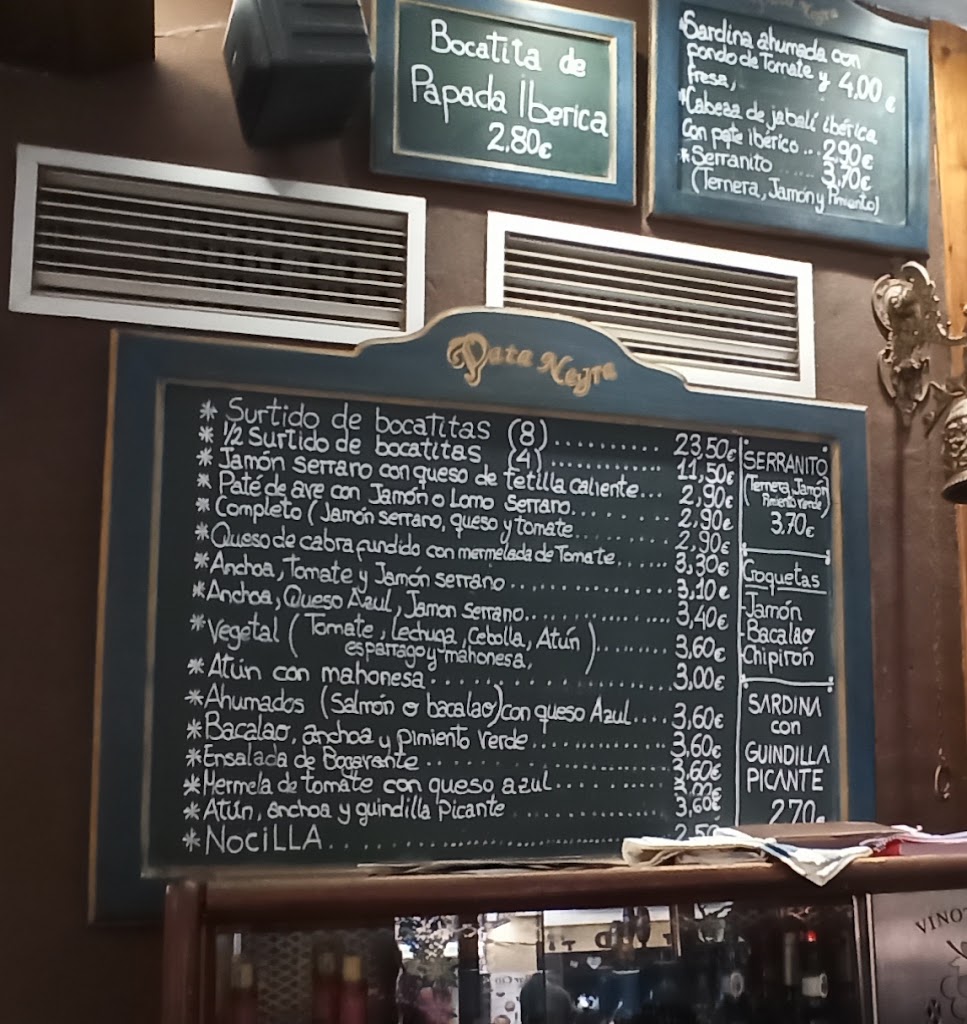 Bocatita de
Papada Iberica
2.80€
Negra
*Sardina ahumada con
fondo de Tomate y 4,00 €
fresa,
*Cabeza de jabalí ibérica
Con paté ibérico... 2,90€
*Serranito...... 3,70€
(Ternera, Jamón y Pimiento)
Pata Negra
* Surtido de bocatitas (8).......... 23,50€
* 1/2 Surtido de bocatitas (4)............ 11,50€
* Jamón serrano con queso de tetilla caliente... 2,90€
* Paté de ave con Jamón o Lomo Serrano......... 2,90€
* Completo (Jamón serrano, queso y tomate......... 2,90€
*Queso de cabra fundido con mermelada de Tomate...... 3,30€
*Anchoa, Tomate y Jamón serrano.................. 3,10€
*Anchoa, Queso Azul, Jamon Serrano................ 3,40€
*Vegetal (Tomate, Lechuga, Cebolla, Atún
esparrago y mahonesa,)......... 3,60€
*Atún con mahonesa...................... 3,00€
*Ahumados (Salmón o bacalao) con queso Azul.... 3,60€
*Bacalao, anchoa y pimiento verde............... 3,60€
*Ensalada de Bogavante.................. 3,60€
*Mermela de tomate con queso azul............
*Atún, anchoa y guindilla Picante................ 3,60€
*NOCILLA............................ 2,50
SERRANITO
(Ternera, Jamón
Pimiento Verde)
3.70€
Croquetas
-Jamón
-Bacalao
Chipirón
SARDINA
con
GUINDILLA
PICANTE
2,70€
VINOT